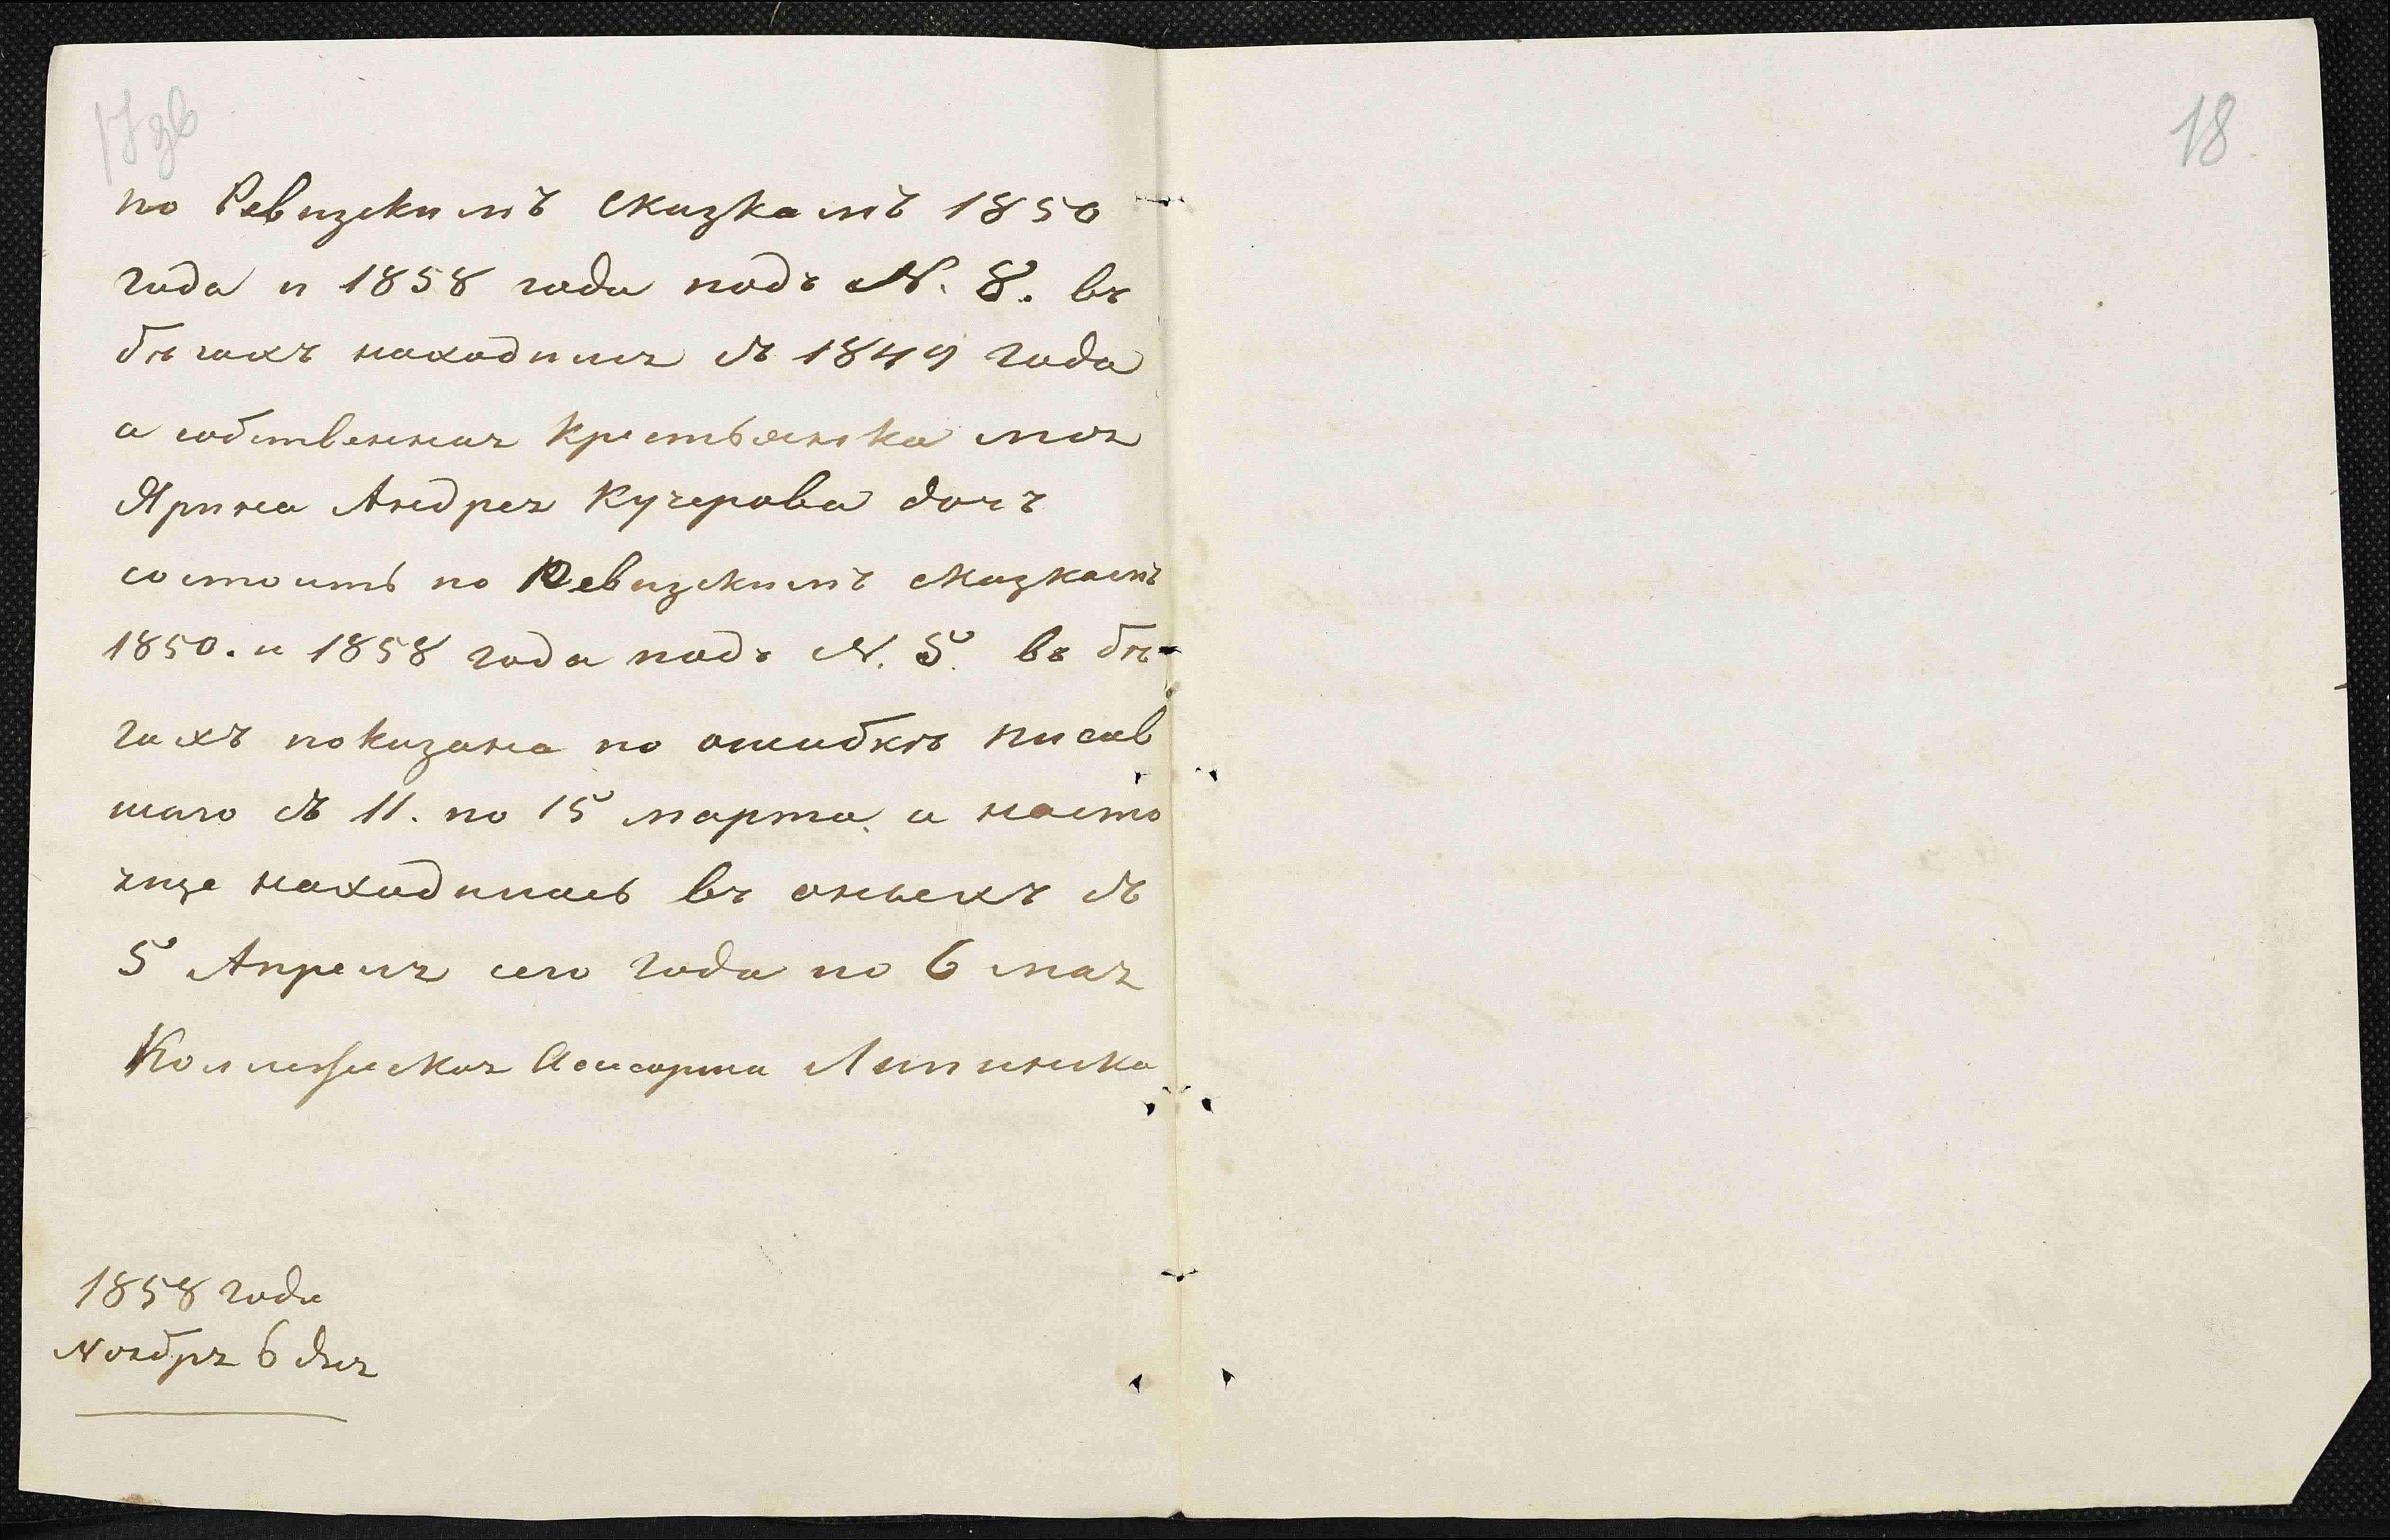 17 зв
18
по Ревизскимъ Сказкамъ 1850
года и 1858 года подъ N. 8. въ
бѣгахъ находится съ 1849 года
а собственная крестьянка моя
Ярина Андрея Кучерова дочъ
состоитъ по Ревизскимъ сказкамъ
1850. и 1858 года подъ N. 5. въ бѣ-
гахъ показана по ошибкѣ писав
шаго съ 11. по 15 марта, а насто
яще находилась въ оныхъ съ
5 Апреля сего года по 6 мая
Коллежская Асесорша Липинска
1858 года
Ноября 6 дня